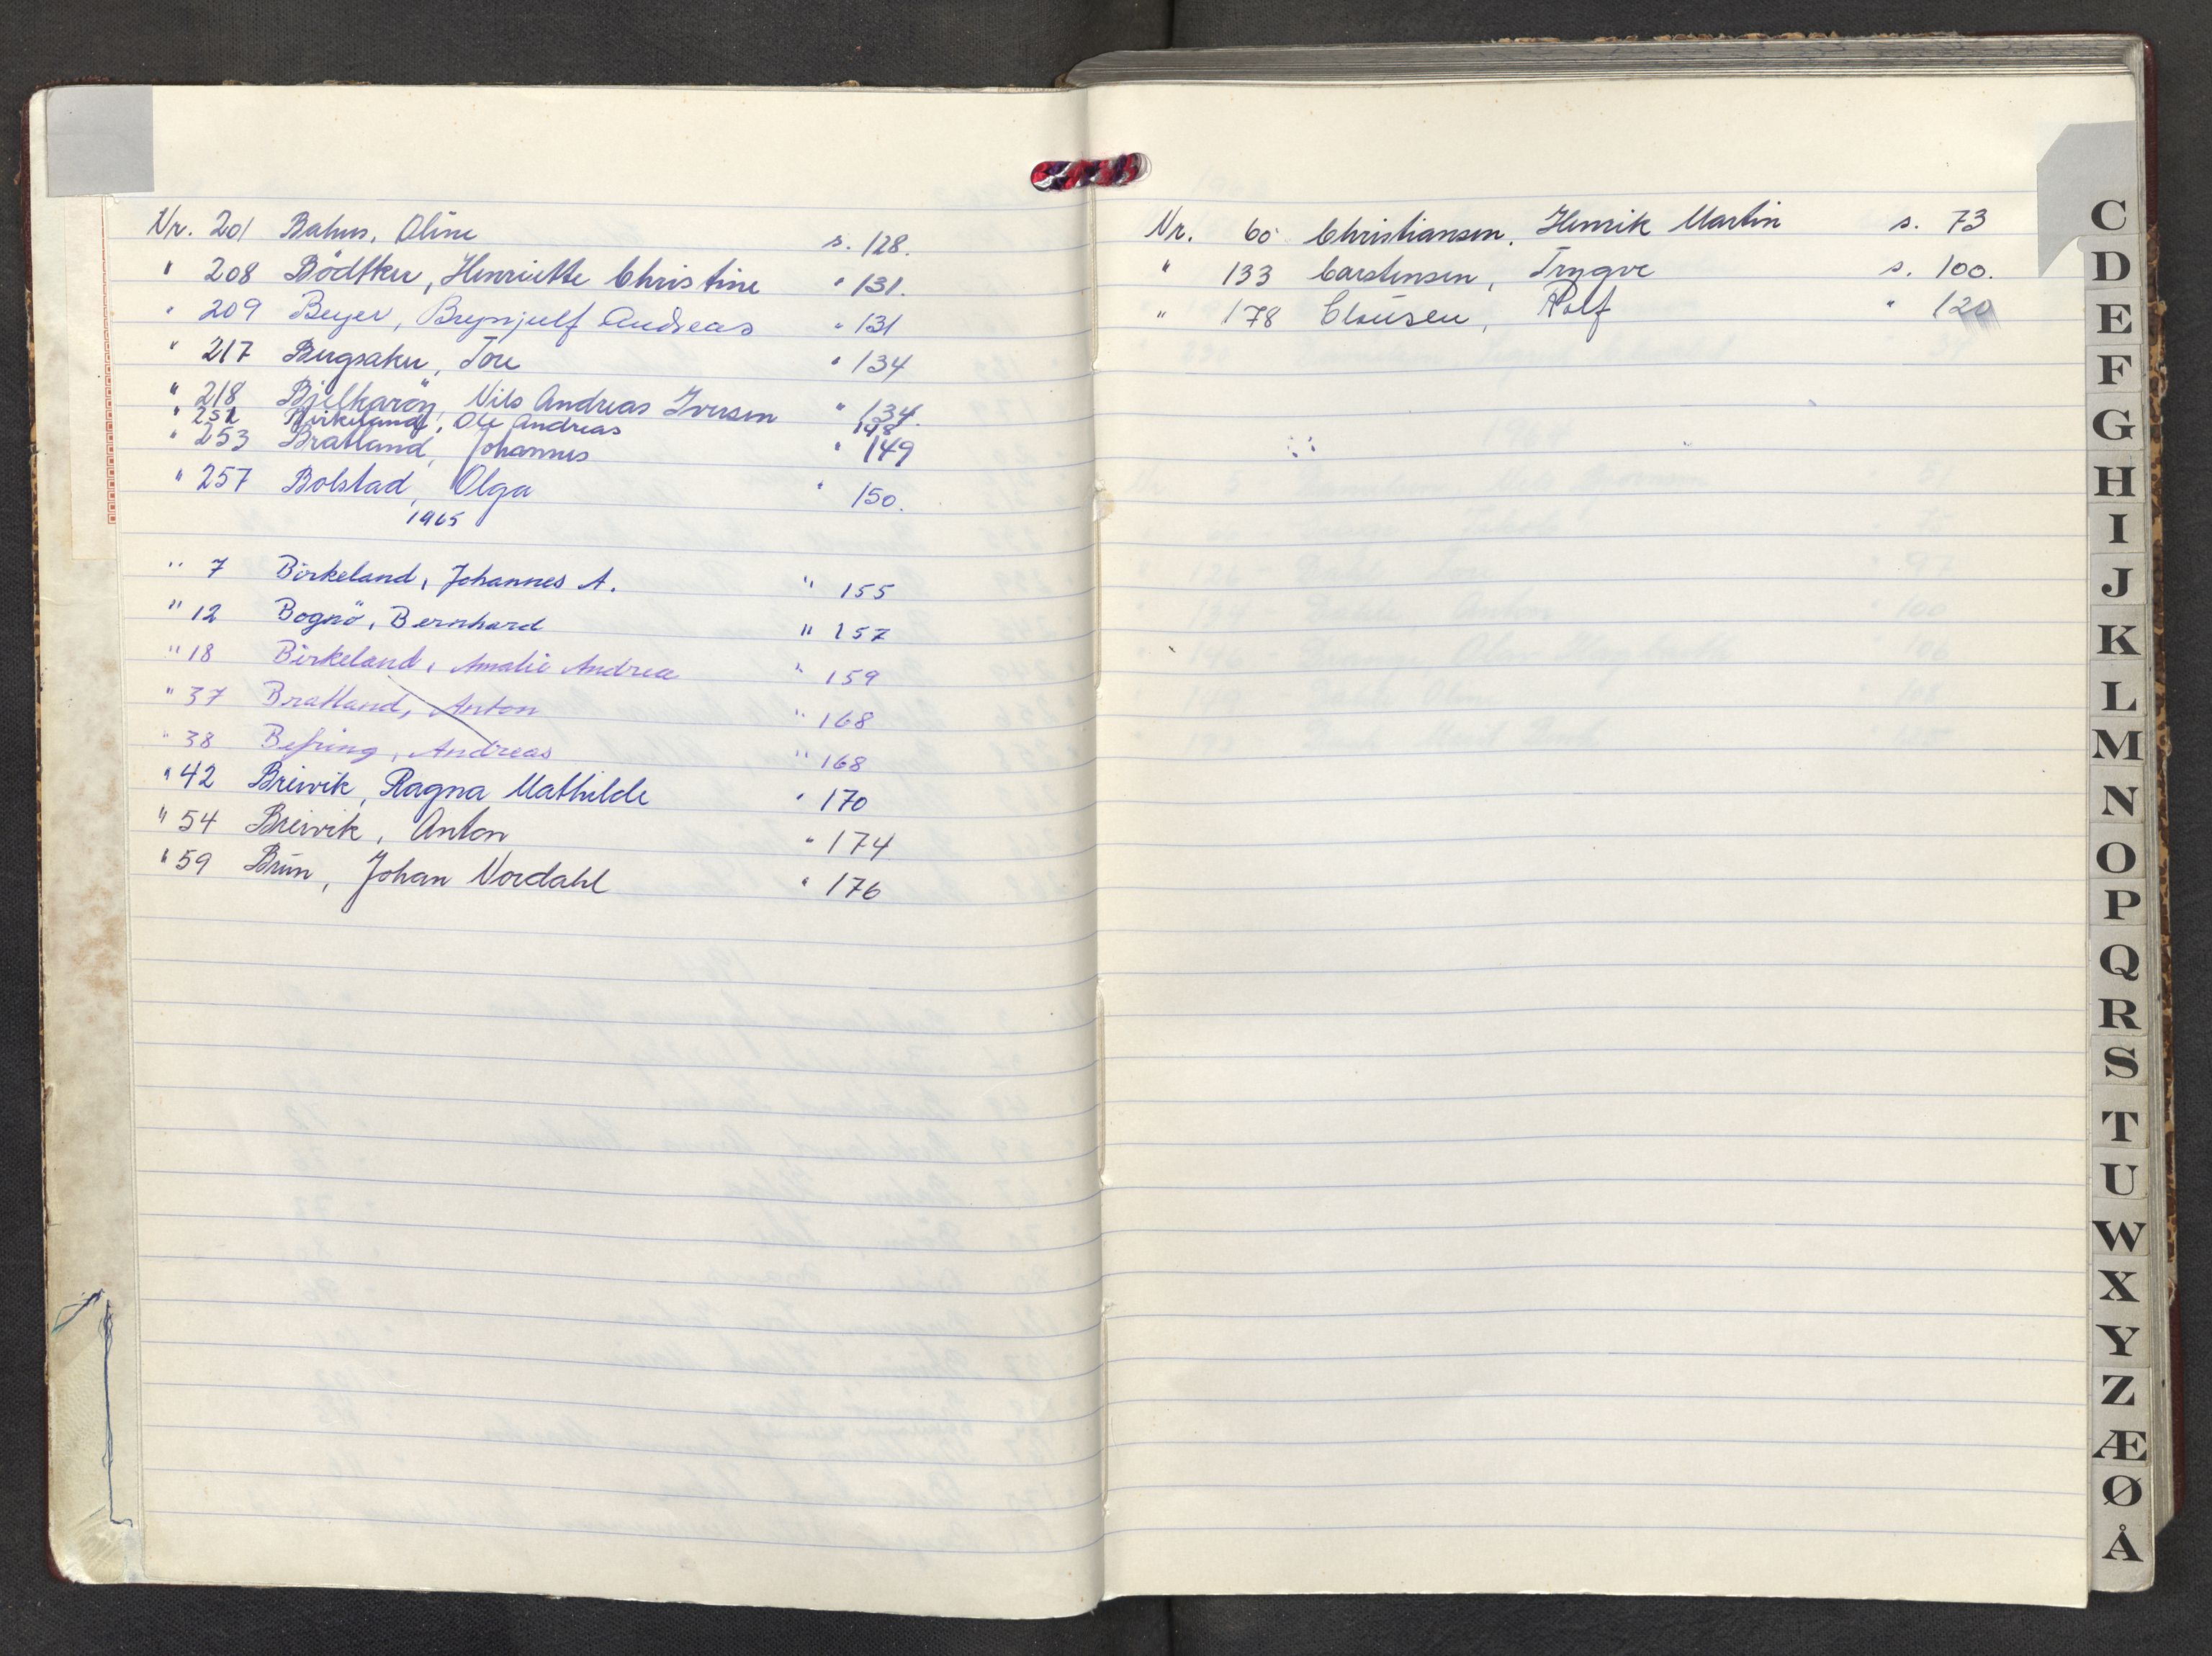 Nr. 201 Bahus, Oline s. 128.
" 208 Bödtker, Henriette Christine " 131.
" 209 Beyer, Brynjulf Andreas " 131
" 217 Bergsaker, Tore " 134
" 218 Bjelkarøy, Nils Andreas Iversen " 134.
" 252 Birkeland, Ole Andreas 148
" 253 Bratland, Johannes " 149
" 257 Bolstad, Olga " 150.
1965
" 7 Birkeland, Johannes A. " 155
" 12 Bognö, Bernhard " 157
" 18 Birkeland, Amalie Andrea " 159
" 37 Bratland, Anton " 168
" 38 Befring, Andreas " 168
" 42 Breivik, Ragna Mathilde " 170
" 54 Breivik, Anton " 174
" 59 Brun, Johan Nordahl " 176
Nr. 60 Christiansen, Henrik Martin s. 73
" 133 Carstensen, Trygve s. 100.
" 178 Clausen, Rolf " 120
C
D
E
F
G
H
I
J
K
L
M
N
O
P
Q
R
S
T
U
W
X
Y
Z
Æ
Ø
Å